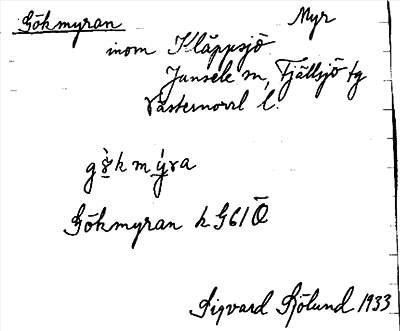 Gökmyran Myr
inom Kläppsjö
Junsele sn, Fjällsjö tg
Västernorrl l.
gö̀kmýra
Gökmyran k G61Ö
Sigvard Sjölund 1933